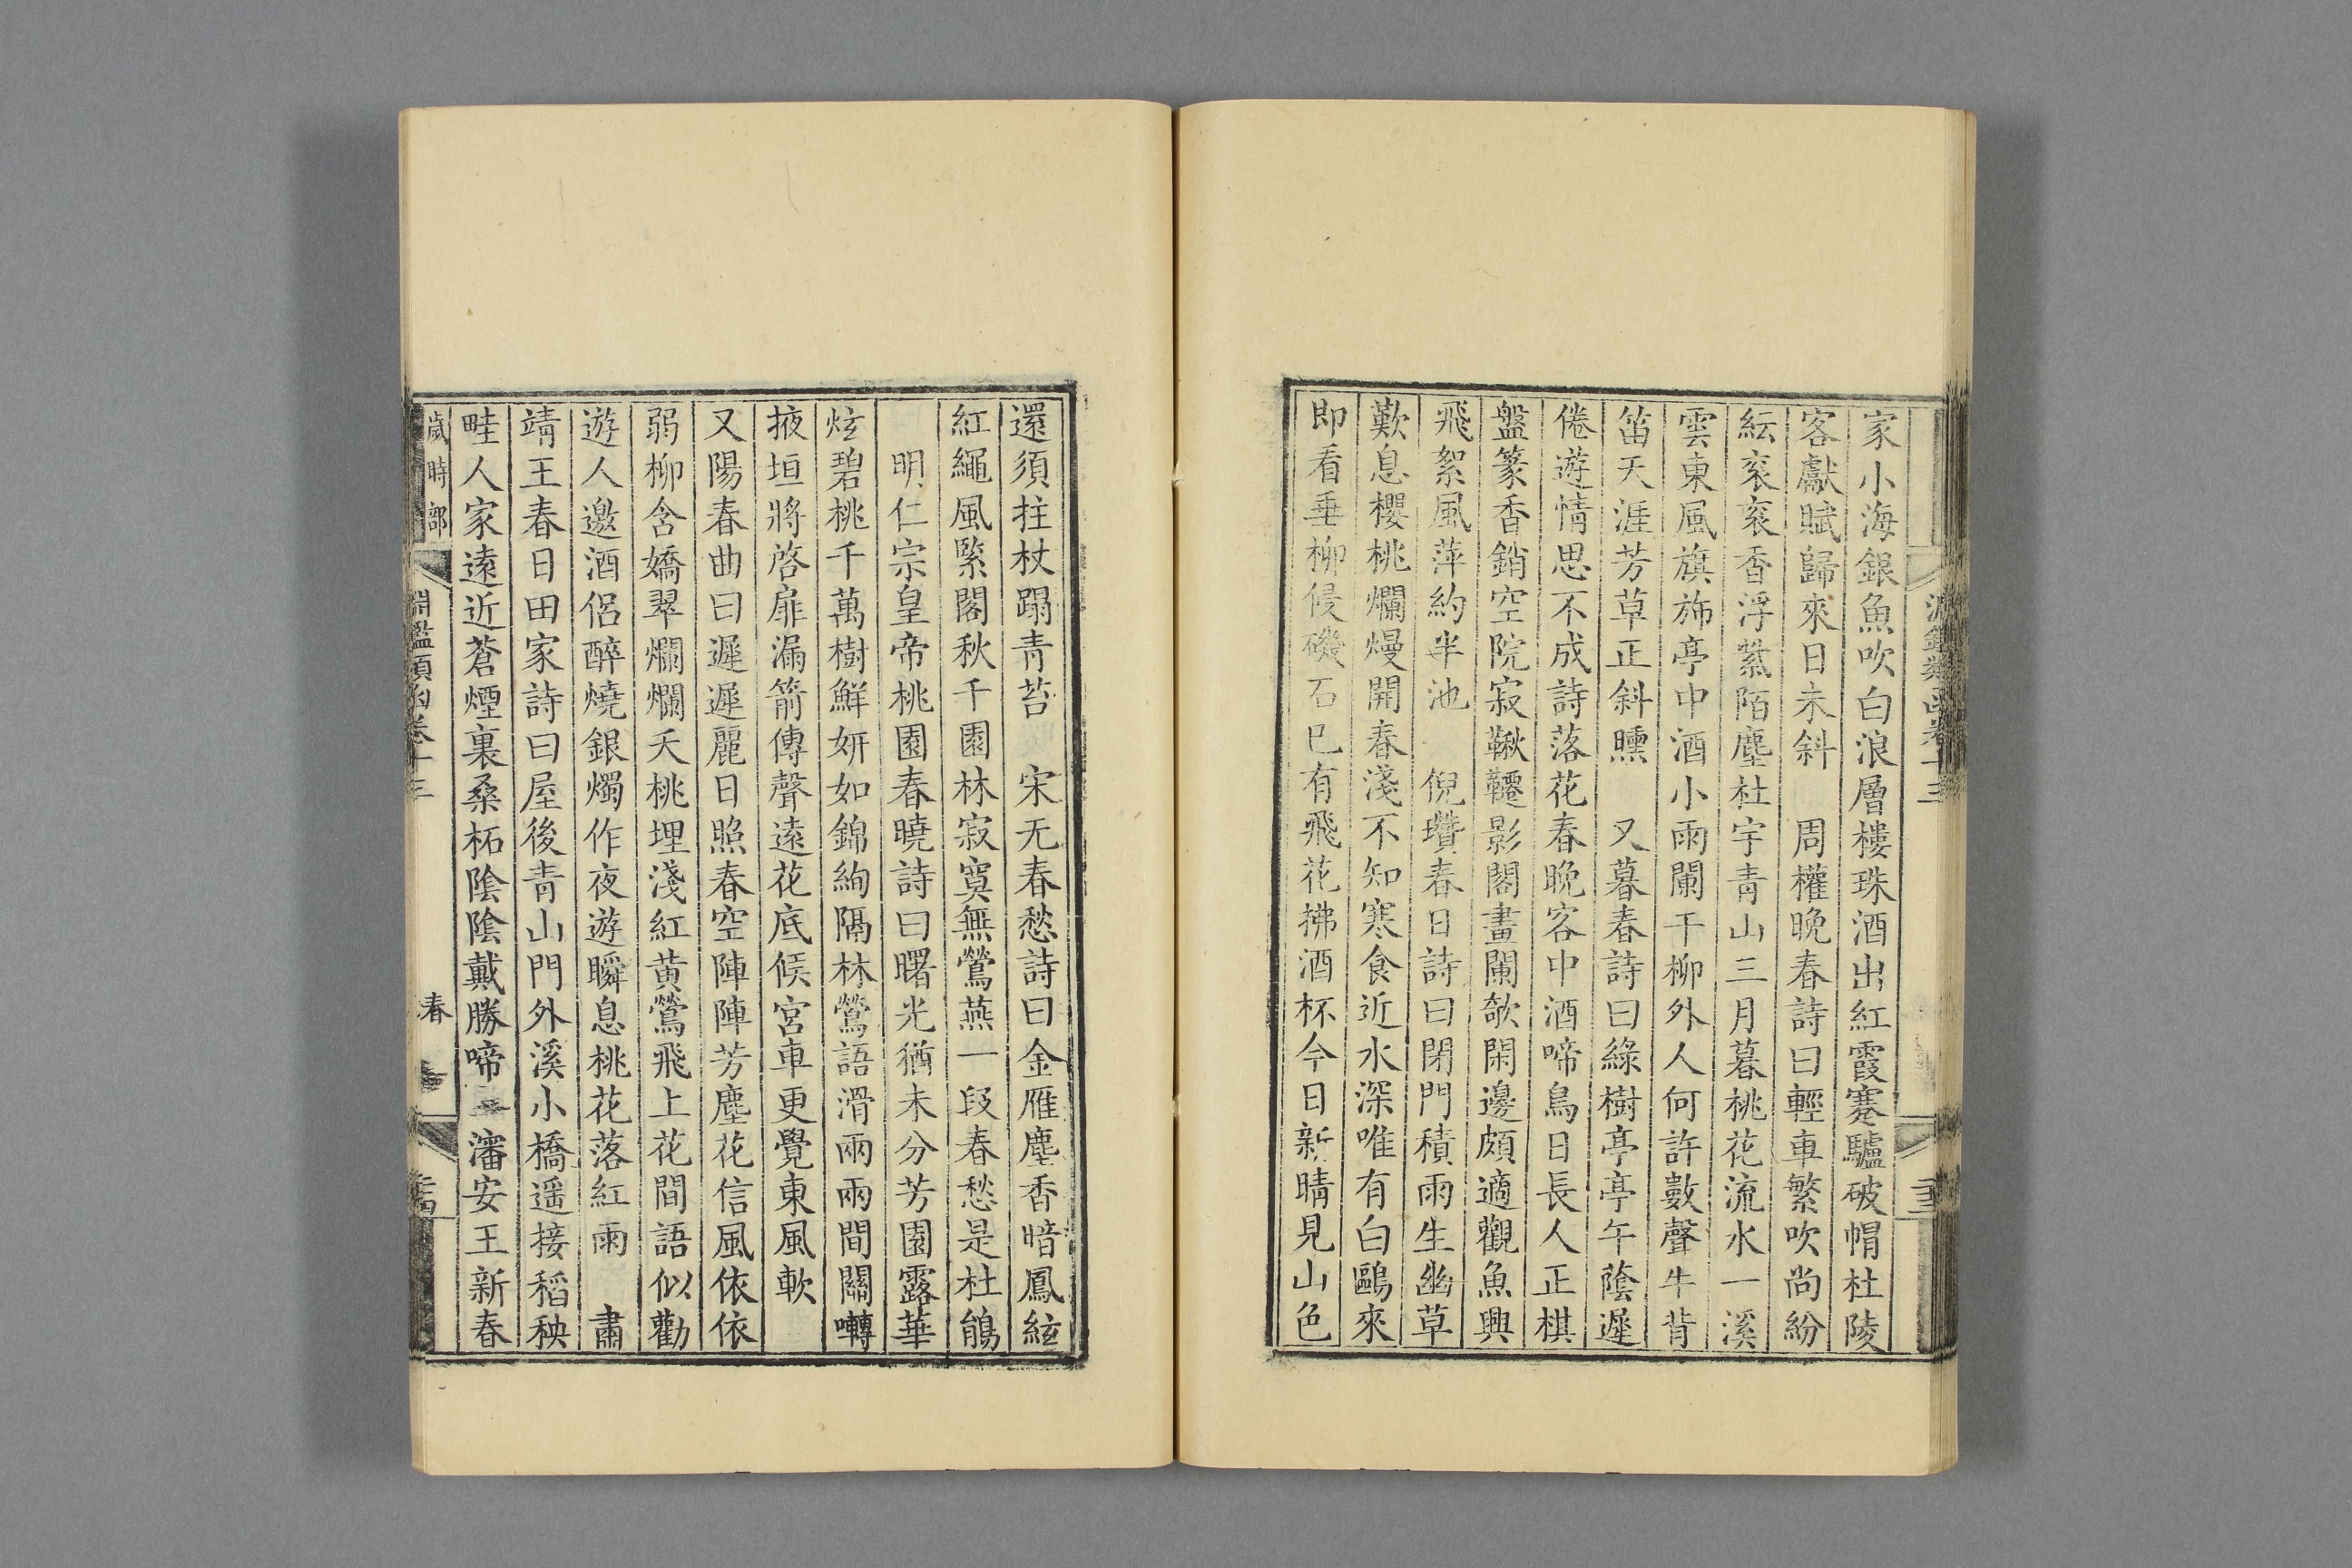 淵鑑類函卷十三
家小海銀魚吹白浪層樓珠酒出紅霞蹇驢破帽杜陵
客獻賦歸來日未斜　周權晚春詩曰輕車繁吹尚紛
紜衮衮香浮紫陌塵杜宇青山三月暮桃花流水一溪
雲東風旗斾亭中酒小雨闌干柳外人何許數聲牛背
笛天涯芳草正斜曛　又暮春詩曰綠樹亭亭午蔭遲
倦遊情思不成詩落花春晚客中酒啼鳥日長人正棋
盤篆香銷空院寂鞦韆影閣畫闌欹閑邊頗適觀魚興
飛絮風萍約半池　倪瓚春日詩曰閉門積雨生幽草
歎息櫻桃爛熳開春淺不知寒食近水深唯有白鷗來
即看垂柳侵磯石已有飛花拂酒杯今日新晴見山色
還須拄杖蹋青苔　宋无春愁詩曰金雁塵香暗鳳絃
紅繩風緊閣秋千園林寂寞無鶯燕一段春愁是杜鵑
明仁宗皇帝桃園春曉詩曰曙光猶未分芳園露華
炫碧桃千萬樹鮮妍如錦絢隔林鶯語滑兩兩間關囀
掖垣將啓扉漏箭傳聲遠花底候宮車更覺東風軟
又陽春曲曰遲遲麗日照春空陣陣芳塵花信風依依
弱柳含嬌翠爛爛夭桃埋淺紅黃鶯飛上花間語似勸
遊人邀酒侶醉燒銀燭作夜遊瞬息桃花落紅雨　肅
靖王春日田家詩曰屋後青山門外溪小橋遥接稻秧
畦人家遠近蒼煙裏桑柘陰陰戴勝啼　瀋安王新春
歲時部　淵鑑類函卷十三　春